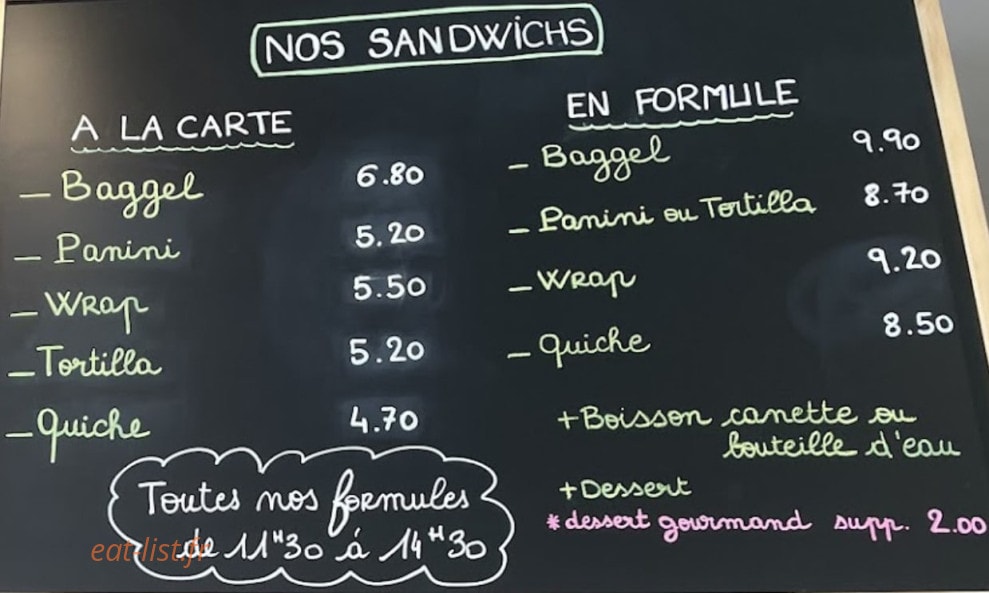 NOS SANDWICHS
A LA CARTE
_ Baggel 6.80
_ Panini 5.20
_ Wrap 5.50
_ Tortilla 5.20
_ Quiche 4.70
Toutes nos formules
de 11H30 á 14H30
EN FORMULE
_ Baggel 9.90
_ Panini ou Tortilla 8.70
_ Wrap 9.20
_ Quiche 8.50
+ Boisson canette ou
bouteille d'eau
+ Dessert
* dessert gourmand supp. 2.00
eat-list.fr